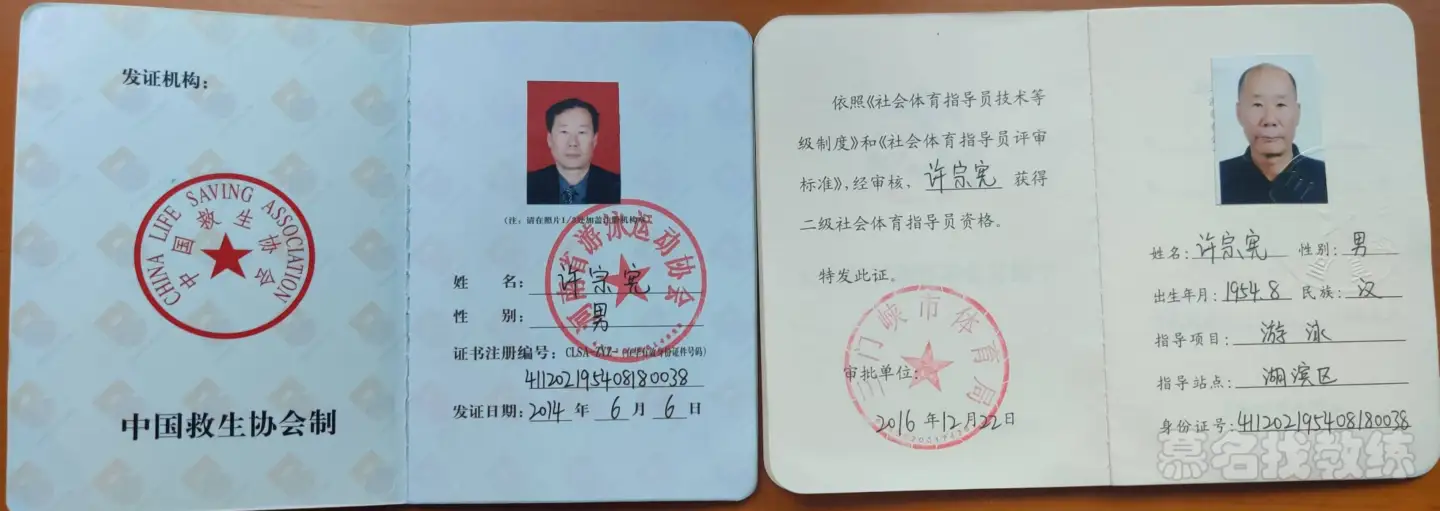 发证机构：
CHINA LIFE SAVING ASSOCIATION
中国救生协会
中国救生协会制
（注：请在照片1/
河南省游泳运动协会
姓 名：许宗宪
性 别：男
证书注册编号：CLSA-ZYZ-
411202195408180038
发证日期：2014年6月6日
依照《社会体育指导员技术等
级制度》和《社会体育指导员评审
标准》，经审核、许宗宪 获得
二级社会体育指导员资格。
特发此证。
三门峡市体育局
审批单位：
2016年12月22日
姓名：许宗宪 性别：男
出生年月：1954.8 民族：汉
指导项目：游泳
指导站点：湖滨区
身份证号：411202195408180038
慕名找教练